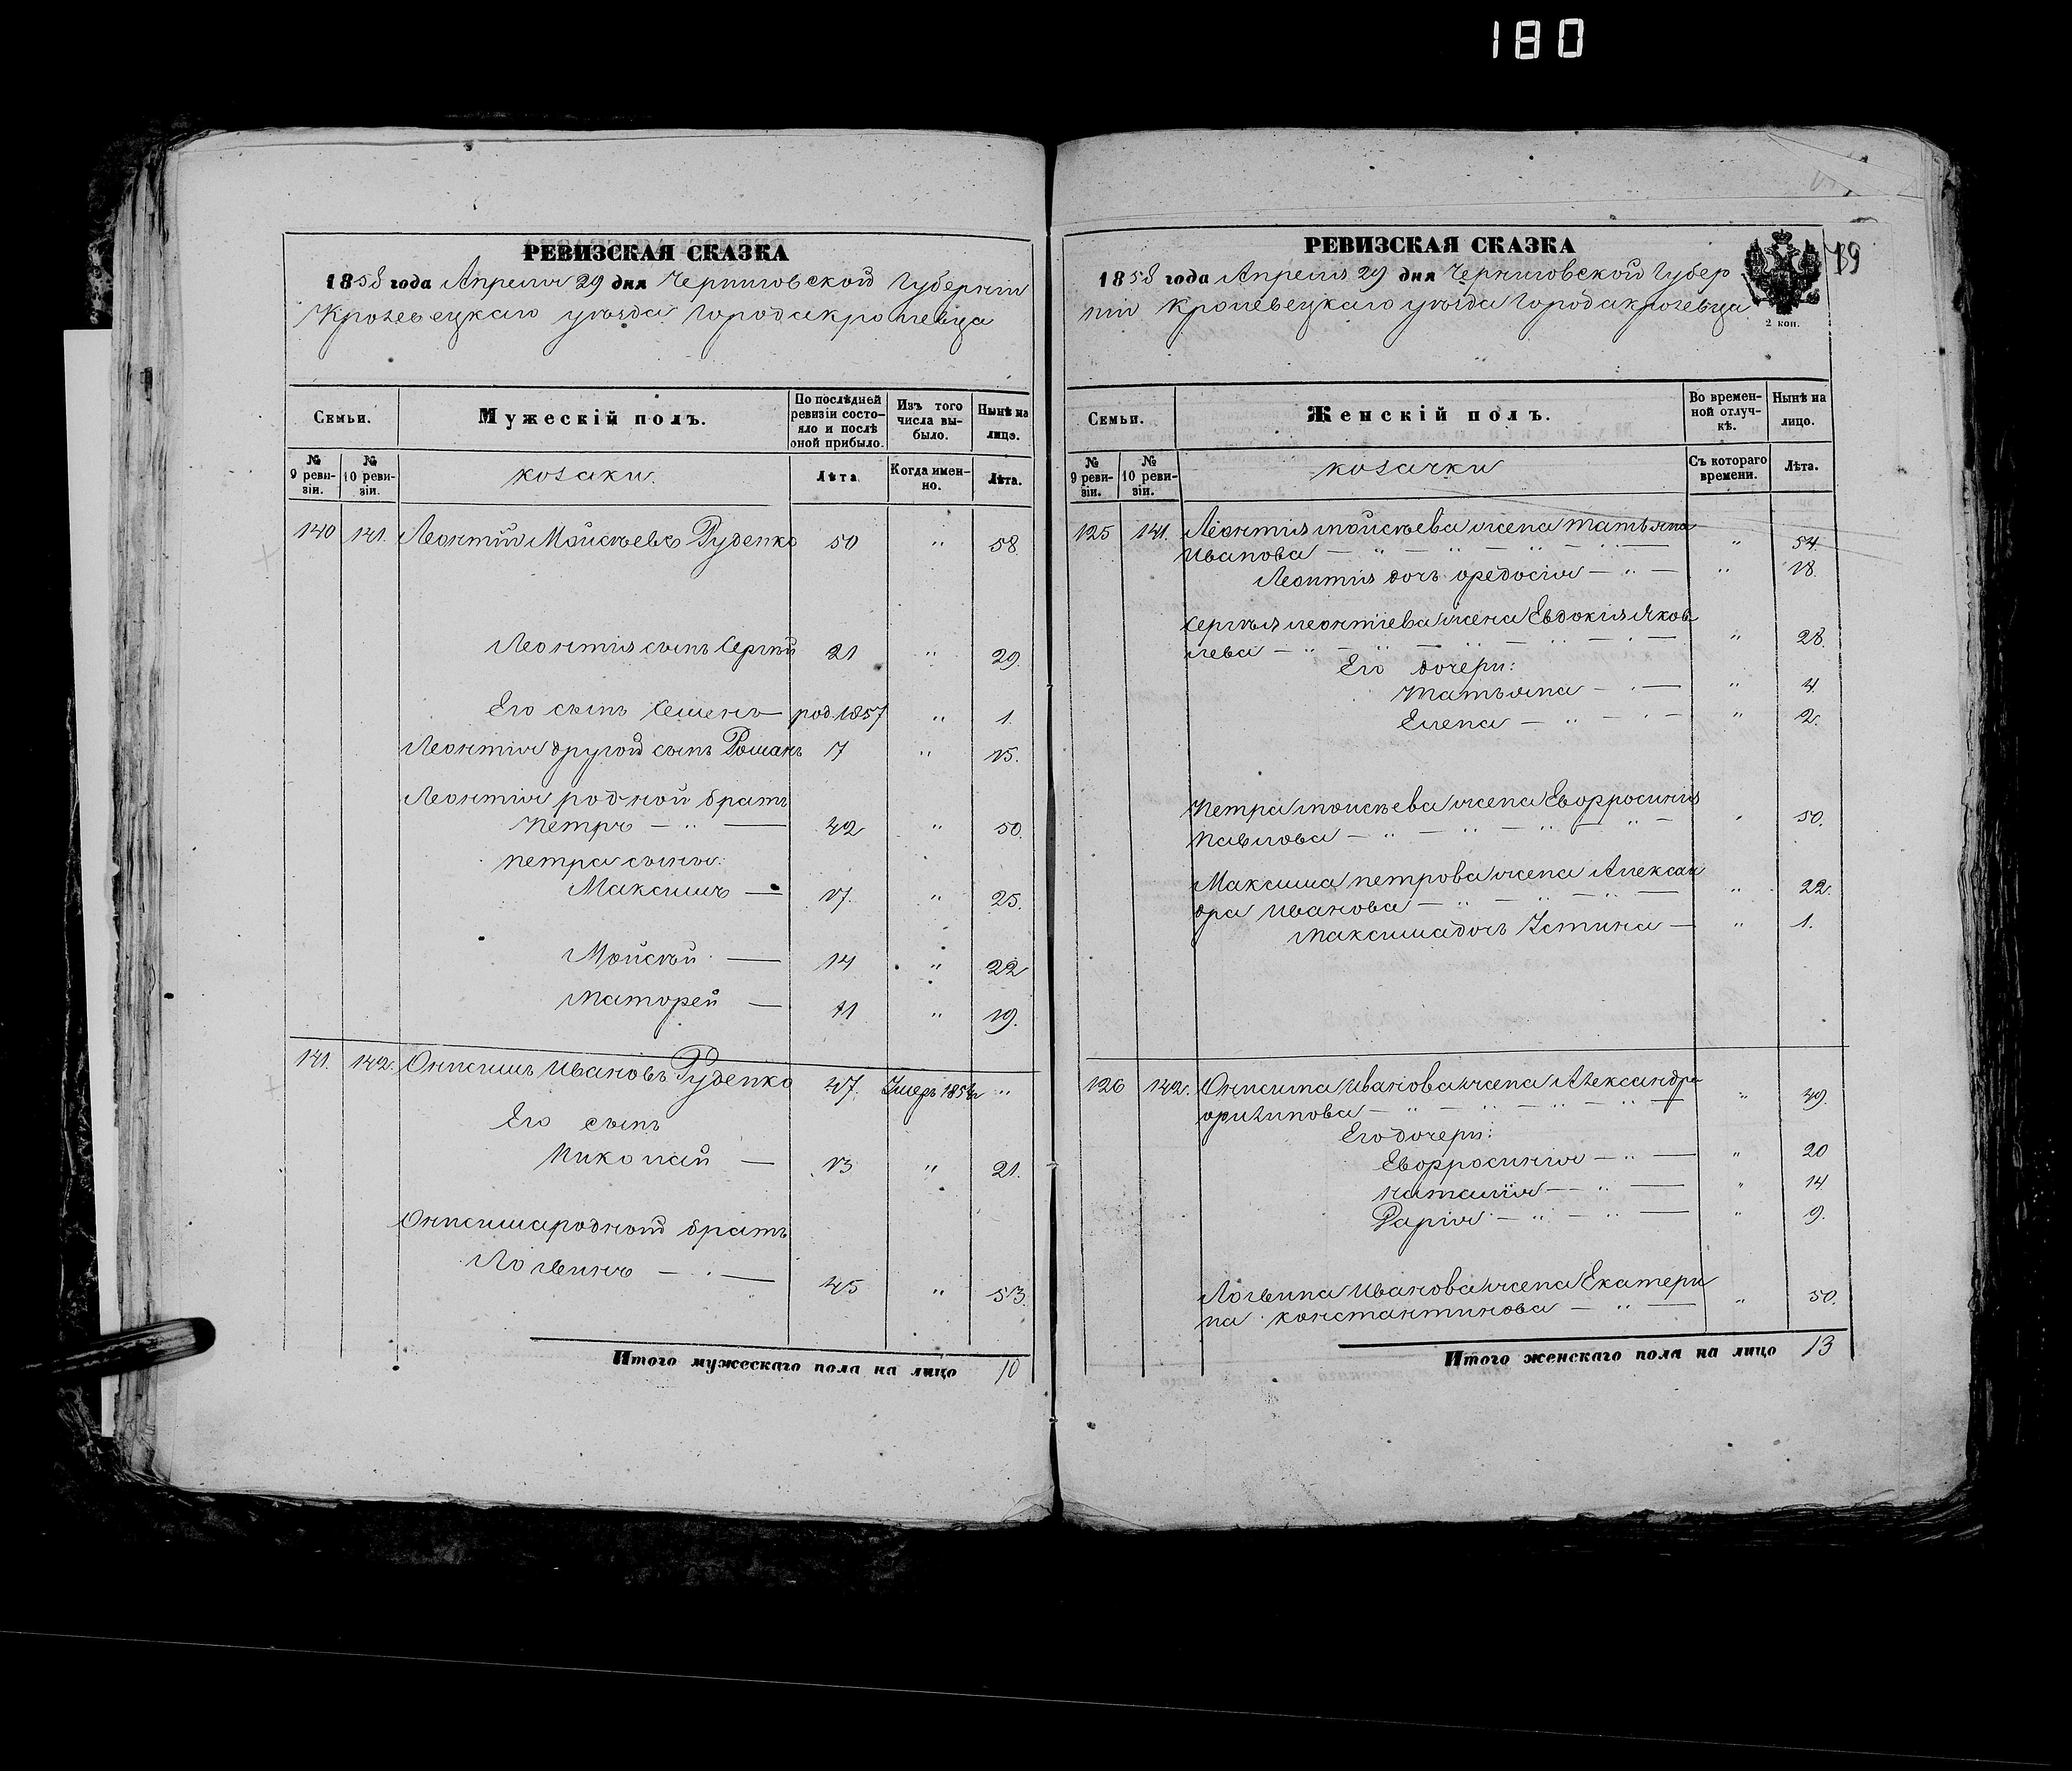 180
РЕВИЗСКАЯ СКАЗКА
1858 года Апреля 29 дня Черниговской Губерніи
Кролевецкаго уѣзда Города кролевца
Семьи.
Мужескій полъ.
По послѣдней ревизіи состояло и послѣ оной прибыло.
Изъ того числа выбыло.
Нынѣ на лицо.
№ 9 ревизіи.
№ 10 ревизіи.
козаки.
Лѣта
Когда именно.
Лѣта.
140 141. Леонтій Мойсѣевъ Руденко 50 " 58.
Леонтія сынъ Сергѣй 21 " 29.
Его сынъ Семенъ — род. 1857 " 1.
Леонтія другой сынъ Романъ 7 " 15.
Леонтія родной братъ
Петръ — " — 42 " 50.
петра сыны:
Максимъ — 17. " 25.
Мойсѣй — 14 " 22
Матфей — 11 " 19.
141. 142. Онисимъ Ивановъ Руденко 47. Умеръ 1854 "
Его сынъ
Николай — 13 " 21.
Онисима родной братъ
Логвинъ — " — 45 " 53.
Итого мужескаго пола на лицо 10
РЕВИЗСКАЯ СКАЗКА
79
1858 года Апреля 29 дня Черниговской Губер
ніи Кролевецкаго уѣзда Города кролевца
2 коп.
Семьи.
Женскій полъ.
Во временной отлучкѣ.
Нынѣ на лицо.
№ 9 ревизіи.
№ 10 ревизіи.
козачки
Съ котораго времени.
Лѣта.
125 141. Леонтія мойсѣева жена татьяна
Иванова — " — " — " — " — " 54.
Леонтія дочь федосія — " — " 18.
Сергѣя леонтіева жена Евдокія Яков
лева — " — " — " — " — " 28.
Его дочери:
татьяна — " — " 4.
Елена — " — " — " 2.
Петра мойсѣева жена Евфросинія
Павлова — " — " — " — " — " 50.
Максима петрова жена Алексан
дра Иванова — " — " — " — " 22.
Максима дочь Устина — " 1.
126 142. Онисима Иванова жена Александра
филипова — " — " — " — " — " 49.
Его дочери:
Евфросинія — " — " 20
наталія — " — " 14
Дарія — " — " — " 9.
Логвина Иванова жена Екатери
на константинова — " — " 50.
Итого женскаго пола на лицо 13